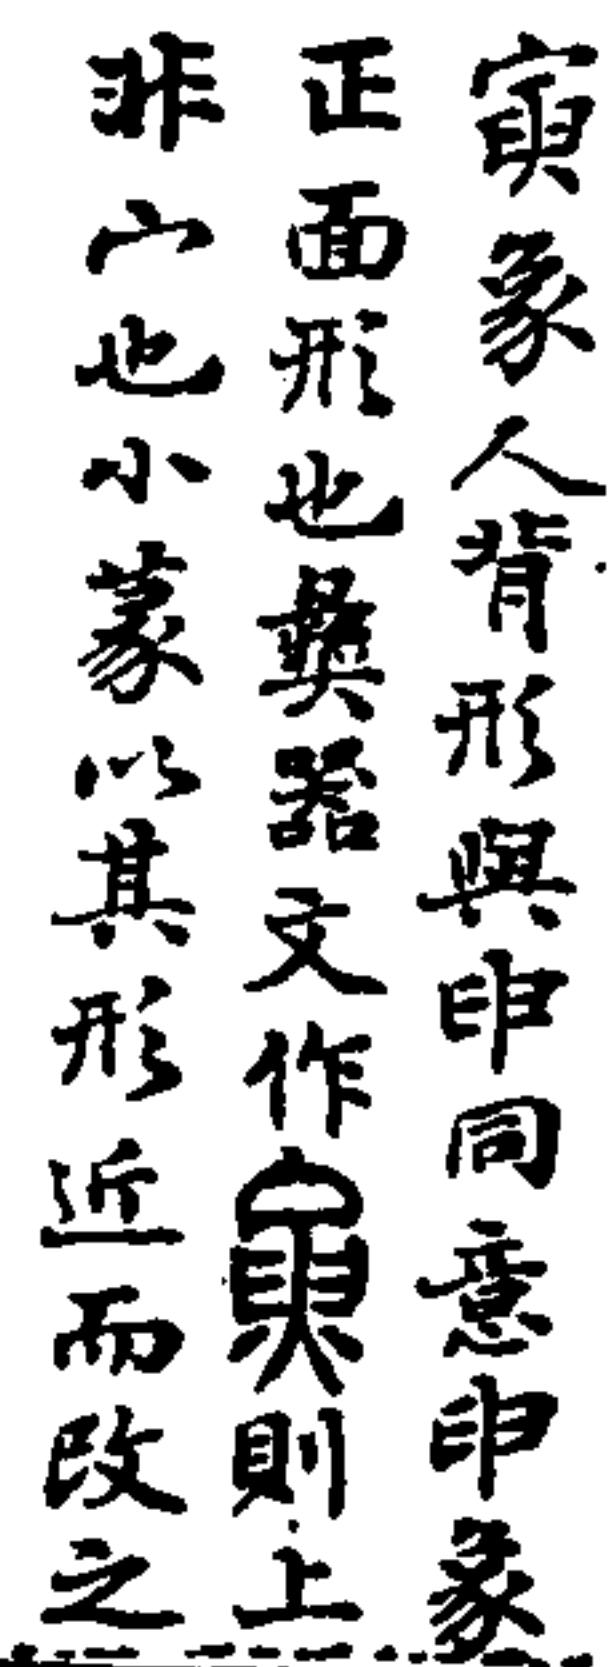 寅象人背形與申同意申象
正面形也彝器文作則上
非宀也小篆以其形近而改之